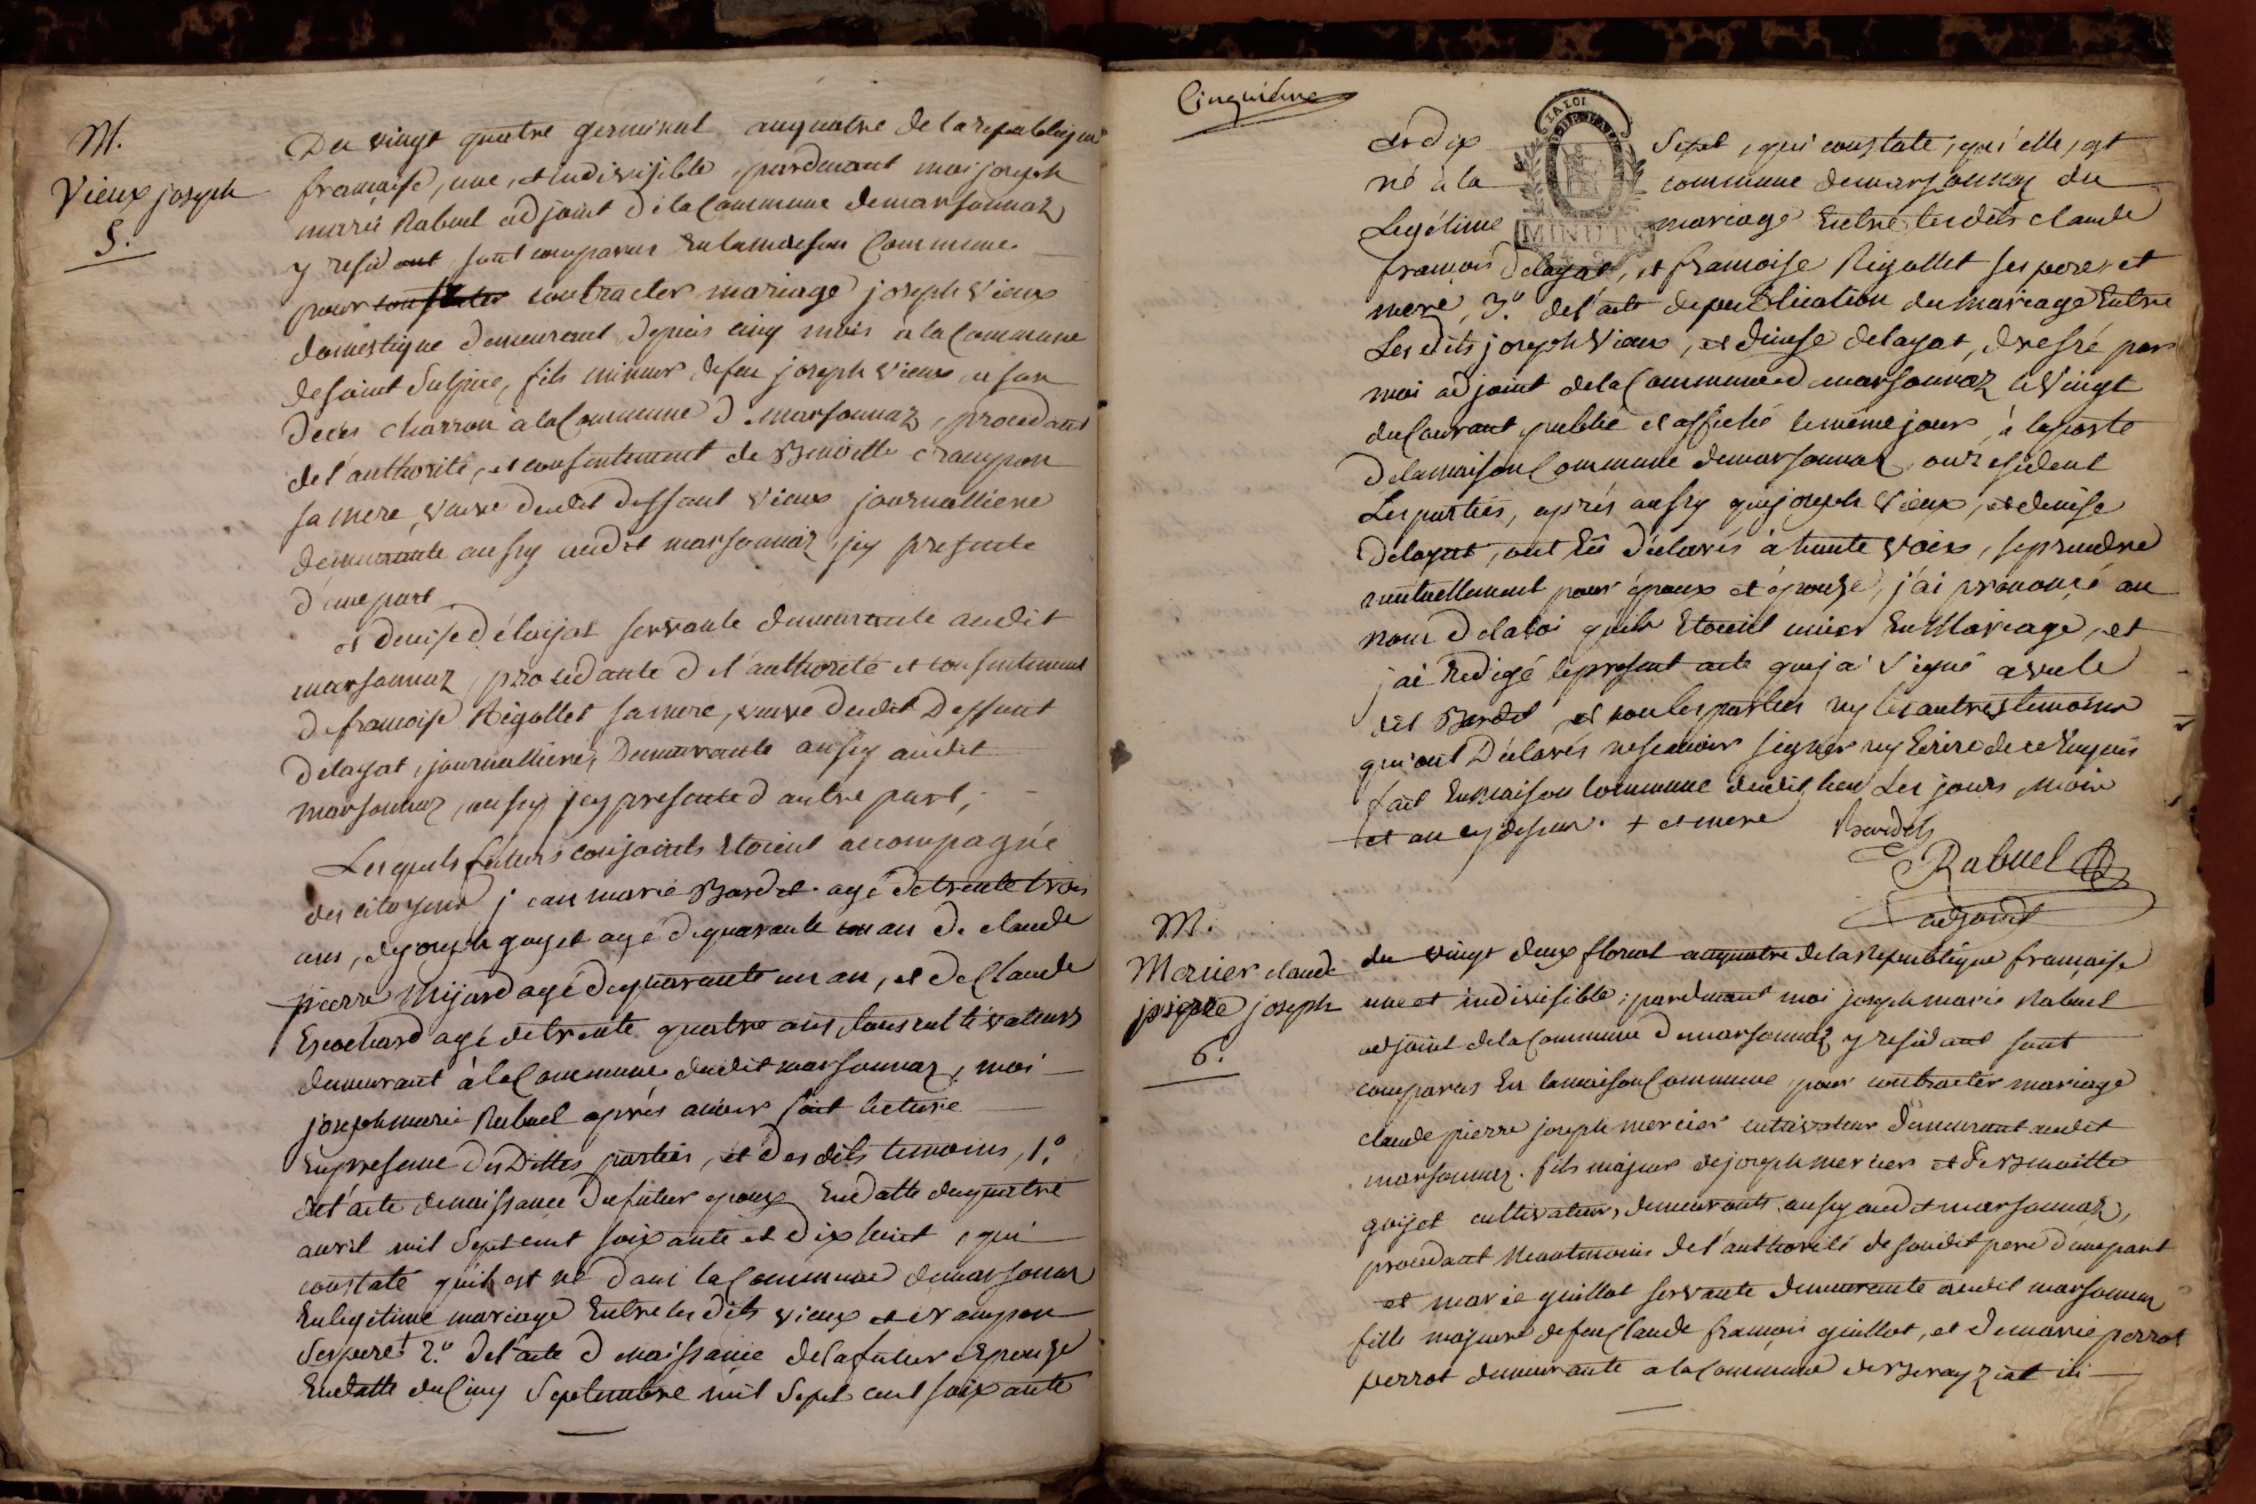 M.
Vieux joseph
5.
Du vingt quatre germinal anquatre de la republique
francaise, une, et indivisible, pardevant moi joseph
marie Rabuel adjoint de la Commune demarsonnaz
y residant sont comparus En lamaison Commune
pour contracter mariage joseph Vieux
domestique demeurant depuis cinq mois a la Commune
desaint Sulpice, fils mineur defeu joseph vieux a son
deces charron a la Commune d marsonnaz, procedant
de l'authorité, et consentement de Benoitte crampon
sa mere, veuve dudit deffunt vieux journalliere
demeurante aussy audit marsonnaz, jcy presente
d'une part
et denise délayat servante demeurante audit
marsonnaz, procedante d l'authorité et consentement
d francoise Rigollet samere, veuve dudit Deffunt
delayat, journalliere, Demeurante aussy audit
marsonnaz, aussy jcy presente d autre part,
Les quels futurs conjoints Etoient accompagné
des citoyens jean marie Bardet agé detrente trois
ans, dejoseph goyet agé dequarante un an de claude
pierre Mijard agé dequarante un an, et de Claude
Escochard agé detrente quatre ans, tous cultivateurs
demeurant à la Commune dudit marsonnaz, moi
joseph marie Rabuel aprés avoir fait lecture
Enpresence des Dittes parties, et des dits temoins, 1.°
del'acte denaissance dufutur epoux Endatte duquatre
avril mil Sept cent soixante et dix huit, qui
constate quil est né dans la Commune demarsonnaz
Enlegitime mariage Entre les dits vieux et crampon
Ses pere + 2.° del'acte d naissance delafuture Epouse
Endatte du Cinq Septembre mil Sept cent soixante
Cinquième
LA LOI
MINUTE
et dix Sept, qui constate, qu'elle, est
né à la commune demarsonnaz du
Legitime mariage Entre lesdits claude
francois delayat, et francoise Rigollet ses peres et
mere, 3.° del'acte depublication dumariage Entre
Les dits joseph Vieux, et denise delayat, dressé par
moi adjoint de la Commune d marsonnaz le Vingt
du Courant, publié et affiché lemême jour, à la porte
delamaison Commune demarsonnaz, ou resident
Les parties, aprés aussy que joseph Vieux, et denise
delayat, ont Eté declarés à haute voix, se prendre
mutuellement pour epoux et epouse, j'ai prononcé au
nom d la loi quils Etoient unies En Mariage, et
j'ai Redigé leprésent acte que j'ai signé avec le
dit Bardet et non les parties ny les autres temoins
qui ont Déclarés ne scavoir signer ny Ecrire de ce Enquis
fait En maison commune dudit lieu Les jours, mois
et an cy dessus. + et mere
Bardet
Rabuel
adjoint
M.
Mercier claude
pierre joseph
6.
du vingt deux floreal anquatre de la Republique francaise
une et indivisible, pardevant moi joseph marie Rabuel
adjoint de la Commune demarsonnaz y residant sont
comparus En lamaison Commune, pour contracter mariage
claude pierre joseph mercier cultivateur demeurant audit
marsonnaz. fils majeur dejoseph mercier et de Benoitte
goyet cultivateurs, demeurants aussy audit marsonnaz,
procedant Neantmoins de l'authorité de sondit pere d'une part
et marie guillot servante demeurante audit marsonnaz
fille majeure defeu Claude francois guillot, et demarie perrot
perrot demeurante a la Commune de Bereyziat